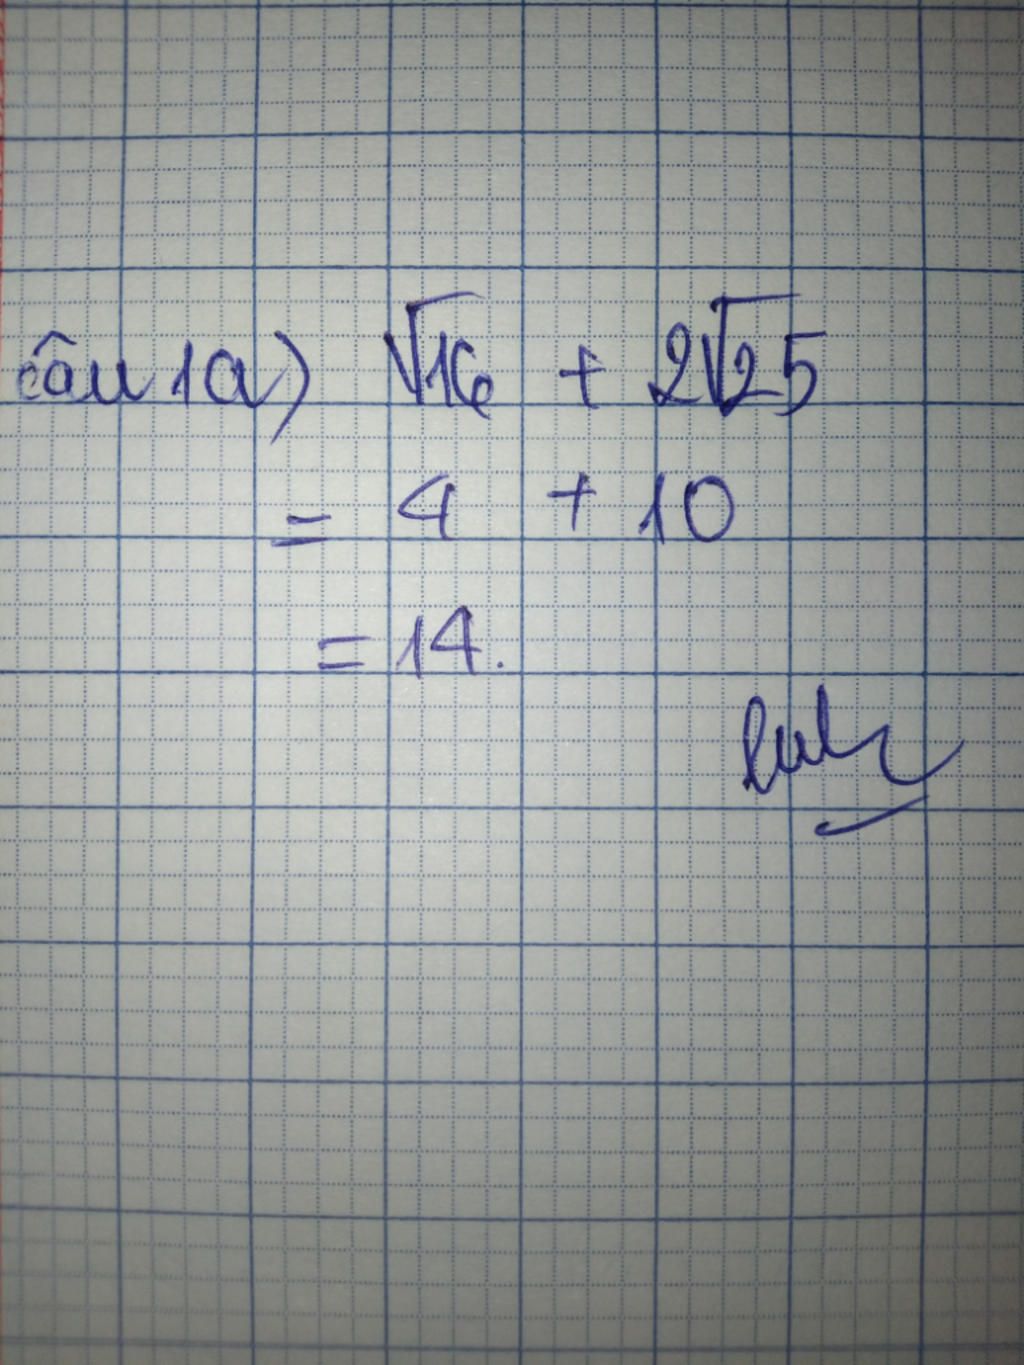 Câu 1a) √16 + 2√25
= 4 + 10
= 14.